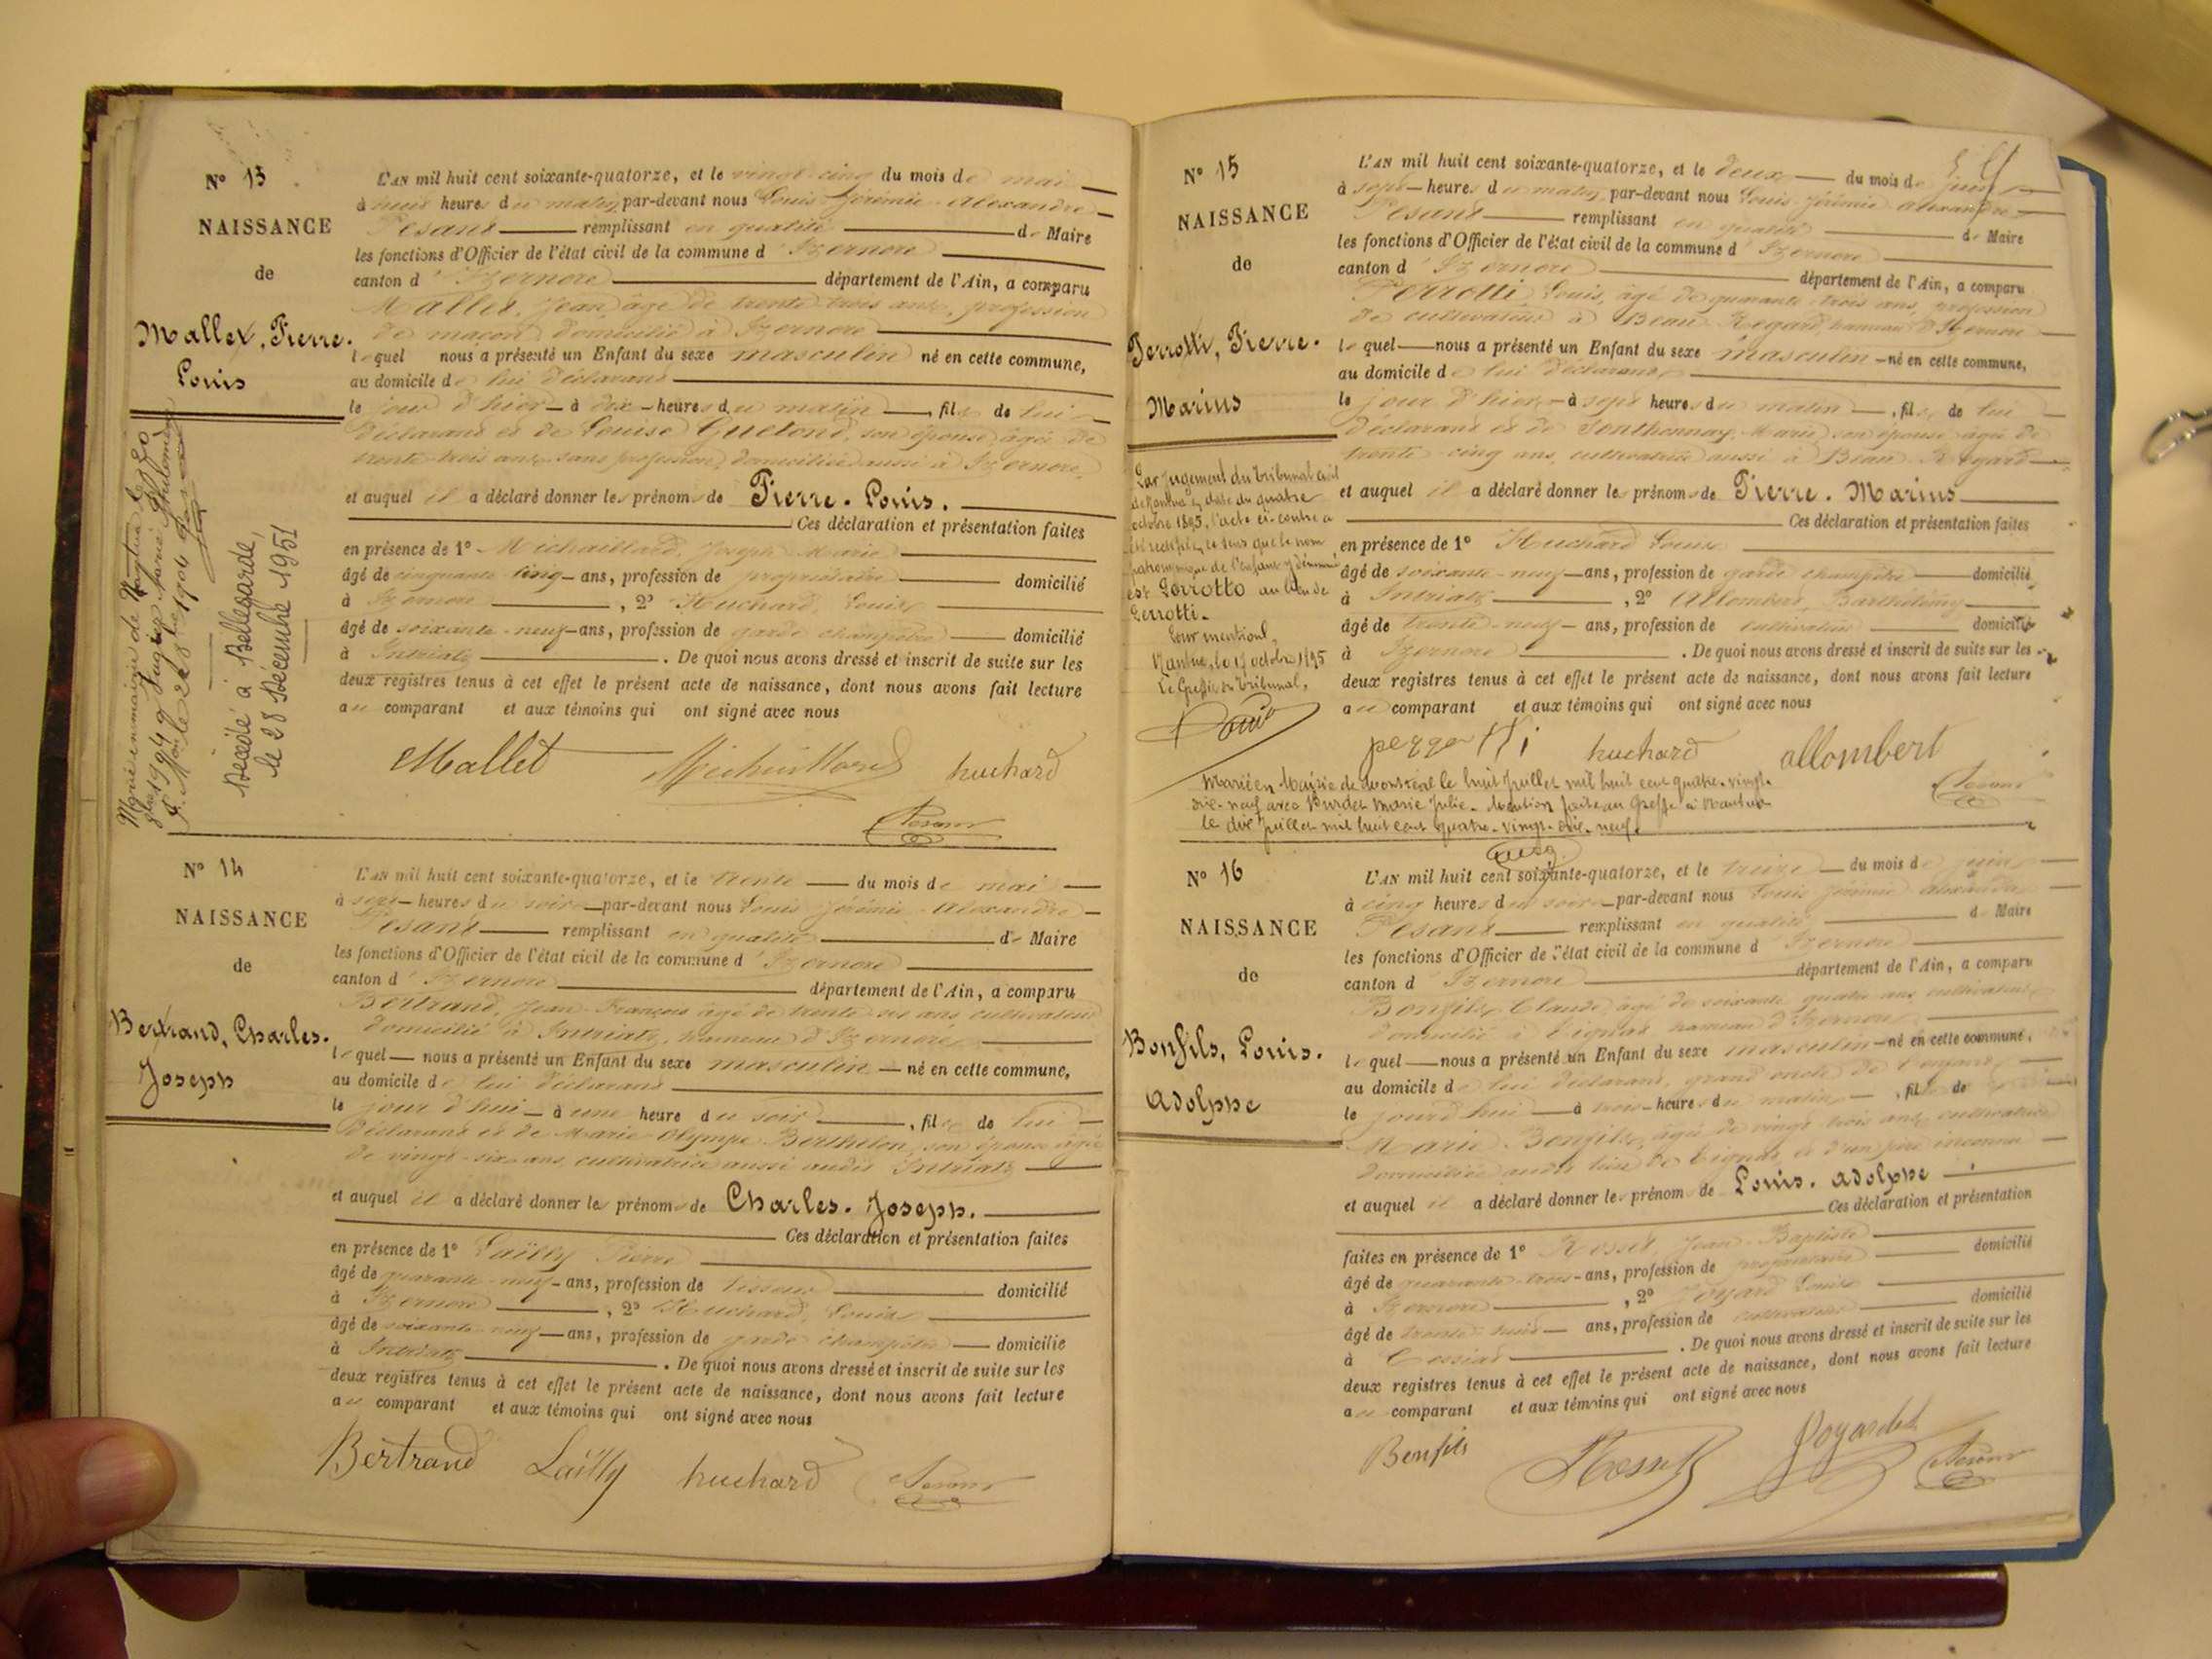 N° 13
NAISSANCE
de
Mallet, Pierre.
Louis
L'AN mil huit cent soixante-quatorze, et le vingt-cinq du mois de mai
à huit heures du matin, par-devant nous Louis Jérémie Alexandre
Pesant remplissant en qualité de Maire
les fonctions d'Officier de l'état civil de la commune d'Izernore
canton d'Izernore département de l'Ain, a comparu
Mallet, Jean, âgé de trente trois ans, profession
de maçon domicilié à Izernore
lequel nous a présenté un Enfant du sexe masculin né en cette commune,
au domicile de lui déclarant
le jour d'hier à dix heures du matin, fils de lui
déclarant et de Louise Guetond, son épouse âgée de
trente-trois ans, sans profession, domiciliée aussi à Izernore
et auquel il a déclaré donner les prénoms de Pierre. Louis.
Ces déclaration et présentation faites
en présence de 1° Michaillard, Joseph Marie
âgé de cinquante cinq ans, profession de propriétaire domicilié
à Izernore, 2° Huchard, Louis
âgé de soixante-neuf ans, profession de garde champêtre domicilié
à Intriatz. De quoi nous avons dressé et inscrit de suite sur les
deux registres tenus à cet effet le présent acte de naissance, dont nous avons fait lecture
au comparant et aux témoins qui ont signé avec nous
Mallet Michaillard huchard
Pesant
Décédé à Bellegarde,
le 28 Décembre 1951
N° 14
NAISSANCE
de
Bertrand, Charles.
Joseph
L'AN mil huit cent soixante-quatorze, et le trente du mois de mai
à sept heures du soir par-devant nous Louis Jérémie Alexandre
Pesant remplissant en qualité de Maire
les fonctions d'Officier de l'état civil de la commune d'Izernore
canton d'Izernore département de l'Ain, a comparu
Bertrand, Jean François âgé de trente six ans cultivateur
domicilié à Intriatz, hameau d'Izernore
lequel nous a présenté un Enfant du sexe masculin né en cette commune,
au domicile de lui déclarant
le jour d'hui à une heure du soir, fils de lui
déclarant et de Marie Olympe Berthelon, son épouse âgée
de vingt-six ans, cultivatrice aussi audit Intriatz
et auquel il a déclaré donner les prénoms de Charles. Joseph.
Ces déclaration et présentation faites
en présence de 1° Lailly Pierre
âgé de quarante-neuf ans, profession de tisseur domicilié
à Izernore, 2° Huchard, Louis
âgé de soixante neuf ans, profession de garde champêtre domicilié
à Intriatz. De quoi nous avons dressé et inscrit de suite sur les
deux registres tenus à cet effet le présent acte de naissance, dont nous avons fait lecture
au comparant et aux témoins qui ont signé avec nous
Bertrand Lailly huchard Pesant
N° 15
NAISSANCE
de
Perrotti, Pierre.
Marius
Par jugement du tribunal civil
de Nantua en date du quatre
octobre 1895, l'acte ci-contre a
été rectifié en ce sens que le nom
patronymique de l'enfant y dénommé
est Poviotto au lieu de
Perrotti.
Pour mention,
Nantua, le 17 octobre 1895
Le Greffier du Tribunal,
L'AN mil huit cent soixante-quatorze, et le deux du mois de juin
à sept heures du matin, par-devant nous Louis Jérémie Alexandre
Pesant remplissant en qualité de Maire
les fonctions d'Officier de l'état civil de la commune d'Izernore
canton d'Izernore département de l'Ain, a comparu
Perrotti, Louis, âgé de quarante trois ans, profession
de cultivateur à Beau Regard, hameau d'Izernore
lequel nous a présenté un Enfant du sexe masculin né en cette commune,
au domicile de lui déclarant
le jour d'hier, à sept heures du matin, fils de lui
déclarant et de Sonthonnay, Marie, son épouse âgée de
trente cinq ans, cultivatrice aussi à Beau Regard
et auquel il a déclaré donner les prénoms de Pierre. Marius
Ces déclaration et présentation faites
en présence de 1° Huchard Louis
âgé de soixante-neuf ans, profession de garde champêtre domicilié
à Intriatz, 2° Allombert, Barthélémy
âgé de trente-neuf ans, profession de cultivateur domicilié
à Izernore. De quoi nous avons dressé et inscrit de suite sur les
deux registres tenus à cet effet le présent acte de naissance, dont nous avons fait lecture
au comparant et aux témoins qui ont signé avec nous
huchard allombert
Pesant
Marié en Mairie de Montréal le huit Juillet mil huit cent quatre-vingt-
dix-neuf avec Burdet Marie Julie. Mention faite au Greffe à Nantua
le dix Juillet mil huit cent quatre-vingt-dix-neuf.
N° 16
NAISSANCE
de
Bonfils, Louis.
Adolphe
L'AN mil huit cent soixante-quatorze, et le treize du mois de juin
à cinq heures du soir par-devant nous Louis Jérémie Alexandre
Pesant remplissant en qualité de Maire
les fonctions d'Officier de l'état civil de la commune d'Izernore
canton d'Izernore département de l'Ain, a comparu
Bonfils, Claude, âgé de soixante quatre ans, cultivateur
domicilié à Tignat hameau d'Izernore
lequel nous a présenté un Enfant du sexe masculin né en cette commune,
au domicile de lui déclarant, grand oncle de l'enfant
le jourd'hui à trois heures du matin, fils de
Marie Bonfils, âgée de vingt trois ans, cultivatrice
domiciliée audit lieu de Tignat, et d'un père inconnu
et auquel il a déclaré donner les prénoms de Louis. Adolphe
Ces déclaration et présentation
faites en présence de 1° Rosset, Jean-Baptiste
âgé de quarante-trois ans, profession de propriétaire domicilié
à Izernore, 2° Louis
âgé de trente huit ans, profession de cultivateur domicilié
à Cessiat. De quoi nous avons dressé et inscrit de suite sur les
deux registres tenus à cet effet le présent acte de naissance, dont nous avons fait lecture
au comparant et aux témoins qui ont signé avec nous
Bonfils Rosset Pesant